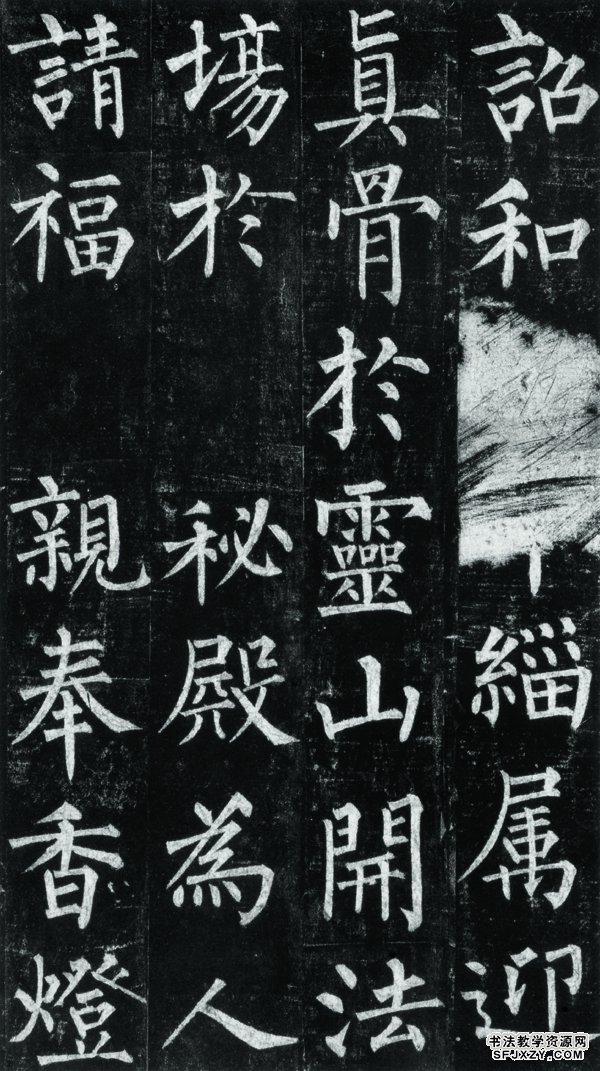 詔和緇属迎
真骨於靈山開法
場於秘殿為人
請福親奉香燈
书法教学资源网
SFJXZY.COM